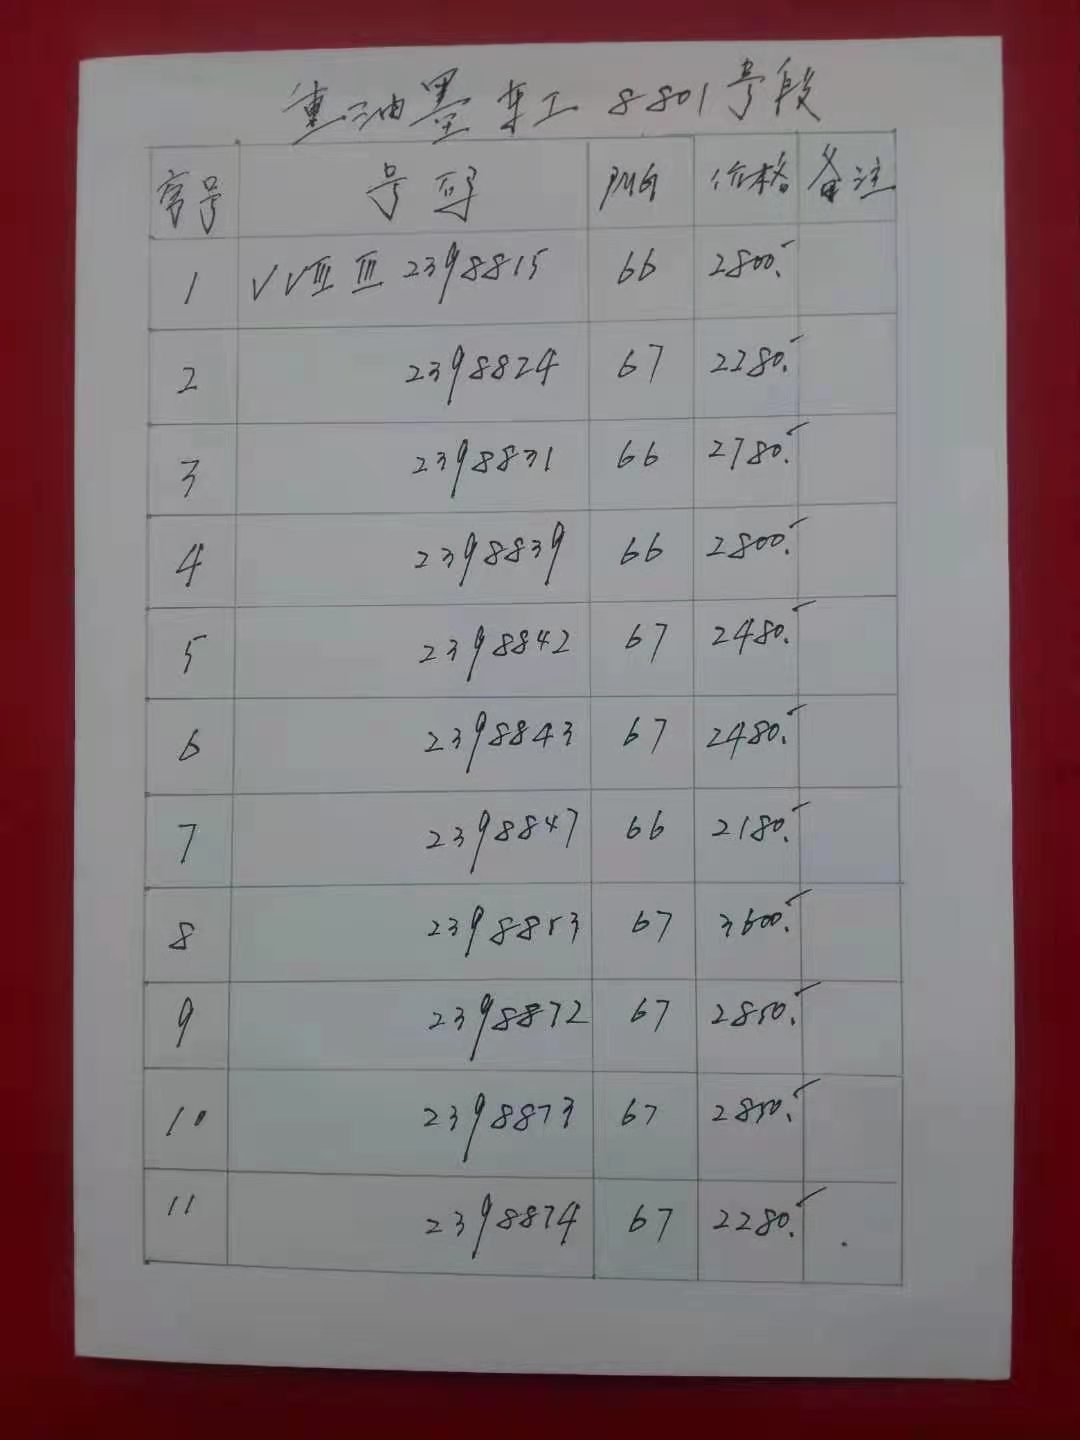 重油墨车工 8801号段
序号 号码 PMG 价格 备注
1 V VIII III 2398815 66 2800.-
2 2398824 67 2280.-
3 2398831 66 2780.-
4 2398839 66 2800.-
5 2398842 67 2480.-
6 2398843 67 2480.-
7 2398847 66 2180.-
8 2398853 67 3600.-
9 2398872 67 2850.-
10 2398873 67 2850.-
11 2398874 67 2280.-